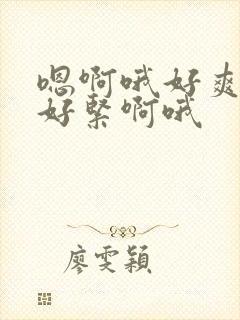 嗯啊哦好爽
好紧啊哦
廖雯颖